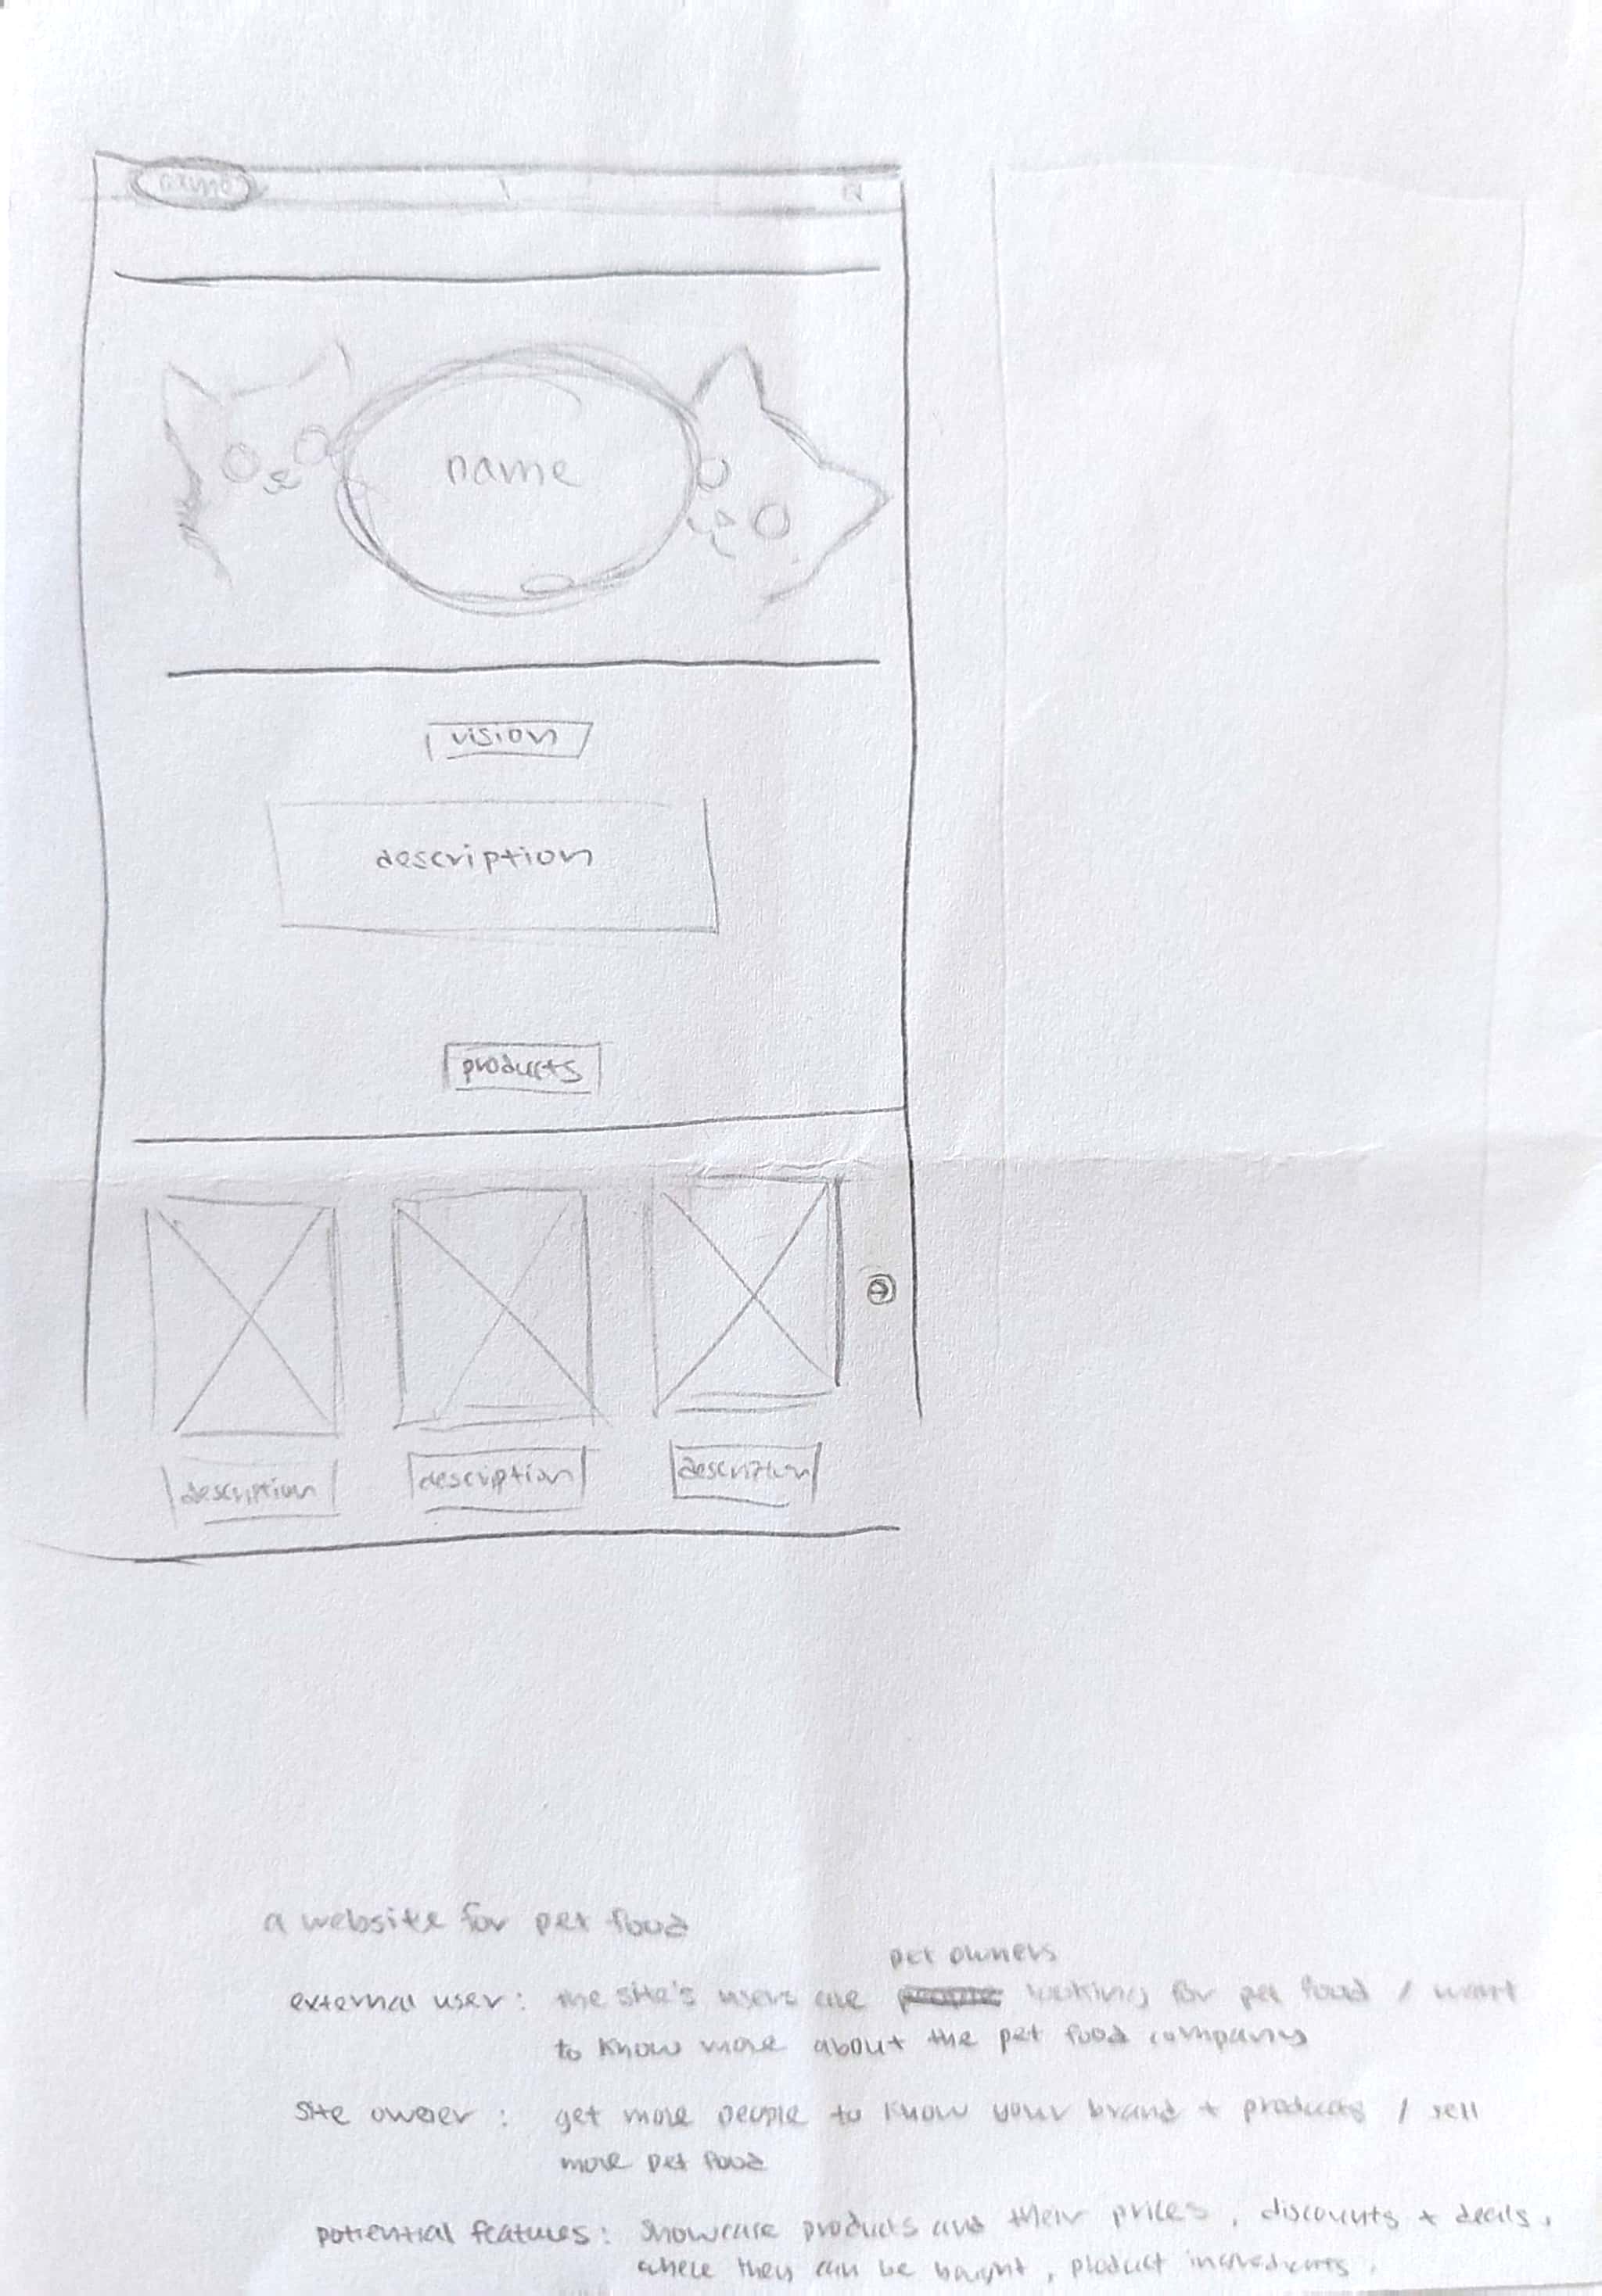 name
name
vision
description
products
description description description
a website for pet food
pet owners
external user: the site's users are looking for pet food / want
to know more about the pet food company
site owner: get more people to know your brand + products / sell
more pet food
potiential features: showcase products and their prices, discounts + deals,
where they can be bought, product ingredients.